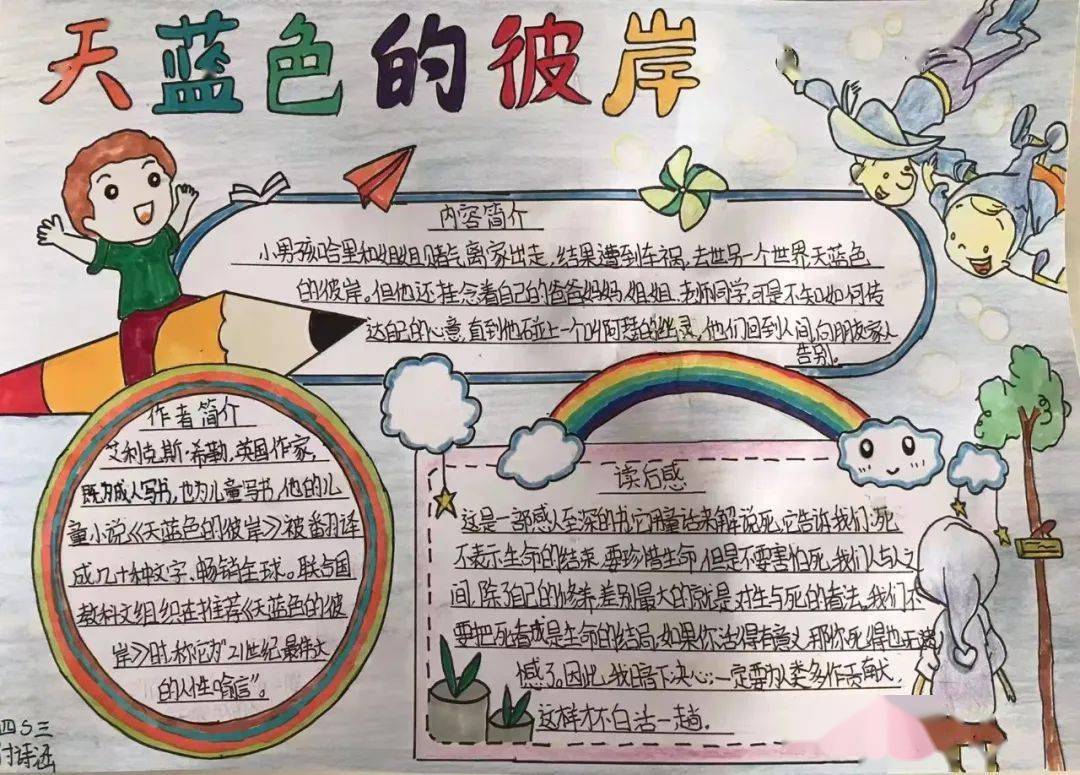 天蓝色的彼岸
内容简介
小男孩哈里和姐姐赌气离家出走,结果遭到车祸,去世另一个世界天蓝色
的彼岸。但他还挂念着自己的爸爸妈妈、姐姐、老师同学,可是不知如何传
达自己的心意,直到他碰上一个叫阿瑟的幽灵,他们回到人间,向朋友家人
告别。
作者简介
艾利克斯·希勒,英国作家,
既为成人写书,也为儿童写书,他的儿
童小说《天蓝色的彼岸》被翻译
成几十种文字、畅销全球。联合国
教科文组织在推荐《天蓝色的彼
岸》时,称它为"21世纪最伟大
的人性喻言"。
读后感
这是一部感人至深的书,它用童话来解说死,它告诉我们:死
不表示生命的结束,要珍惜生命,但是不要害怕死,我们人与人之
间,除了自己的修养,差别最大的就是对生与死的看法。我们不
要把死看成是生命的结局,如果你活得有意义,那你死得也无遗
憾了。因此,我暗下决心:一定要为人类多作贡献,
这样才不白活一趟.
四5三
付诗涵